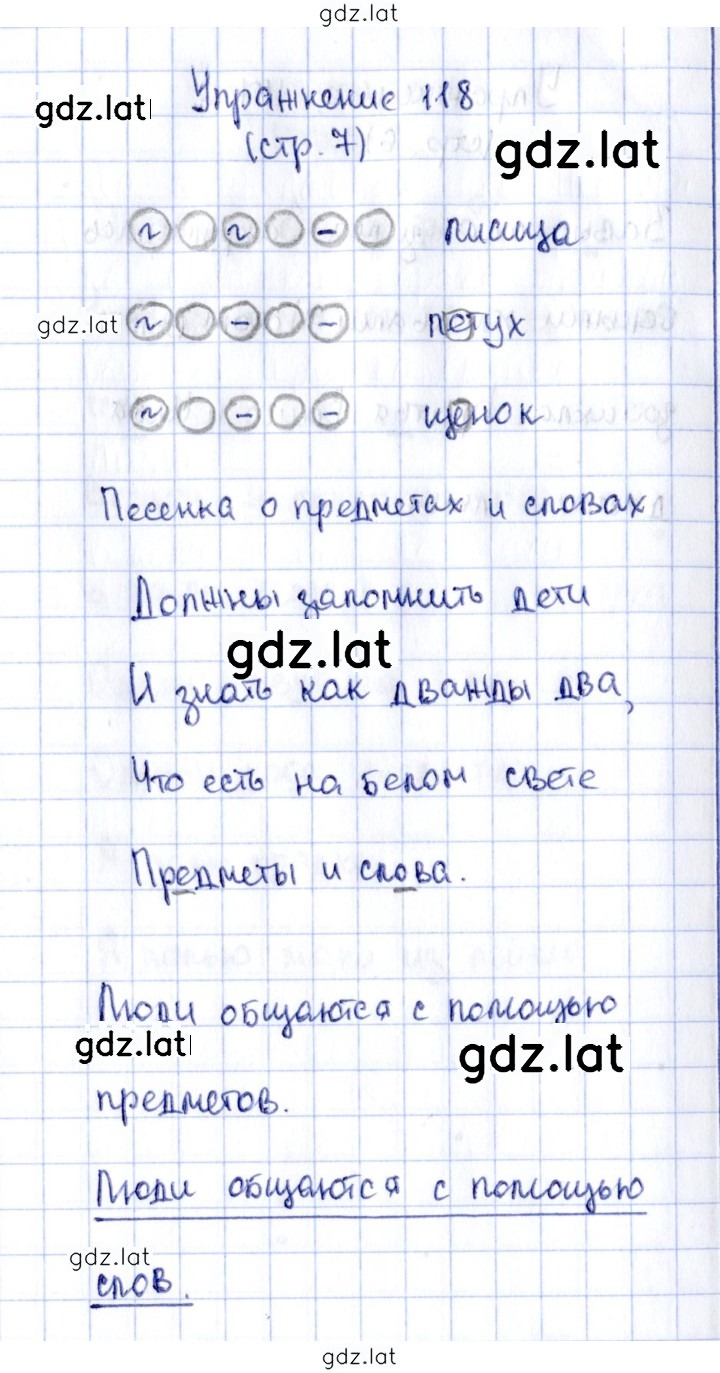 gdz.lat
Упражнение 118
gdz.lat
(стр. 7)
gdz.lat
~ ~ - лисица
gdz.lat
~ - - петух
~ - - щенок
Песенка о предметах и словах
Должны запомнить дети
gdz.lat
И знать как дважды два,
Что есть на белом свете
Предметы и слова.
Люди общаются с помощью
gdz.lat
gdz.lat
предметов.
Люди общаются с помощью
gdz.lat
слов.
gdz.lat